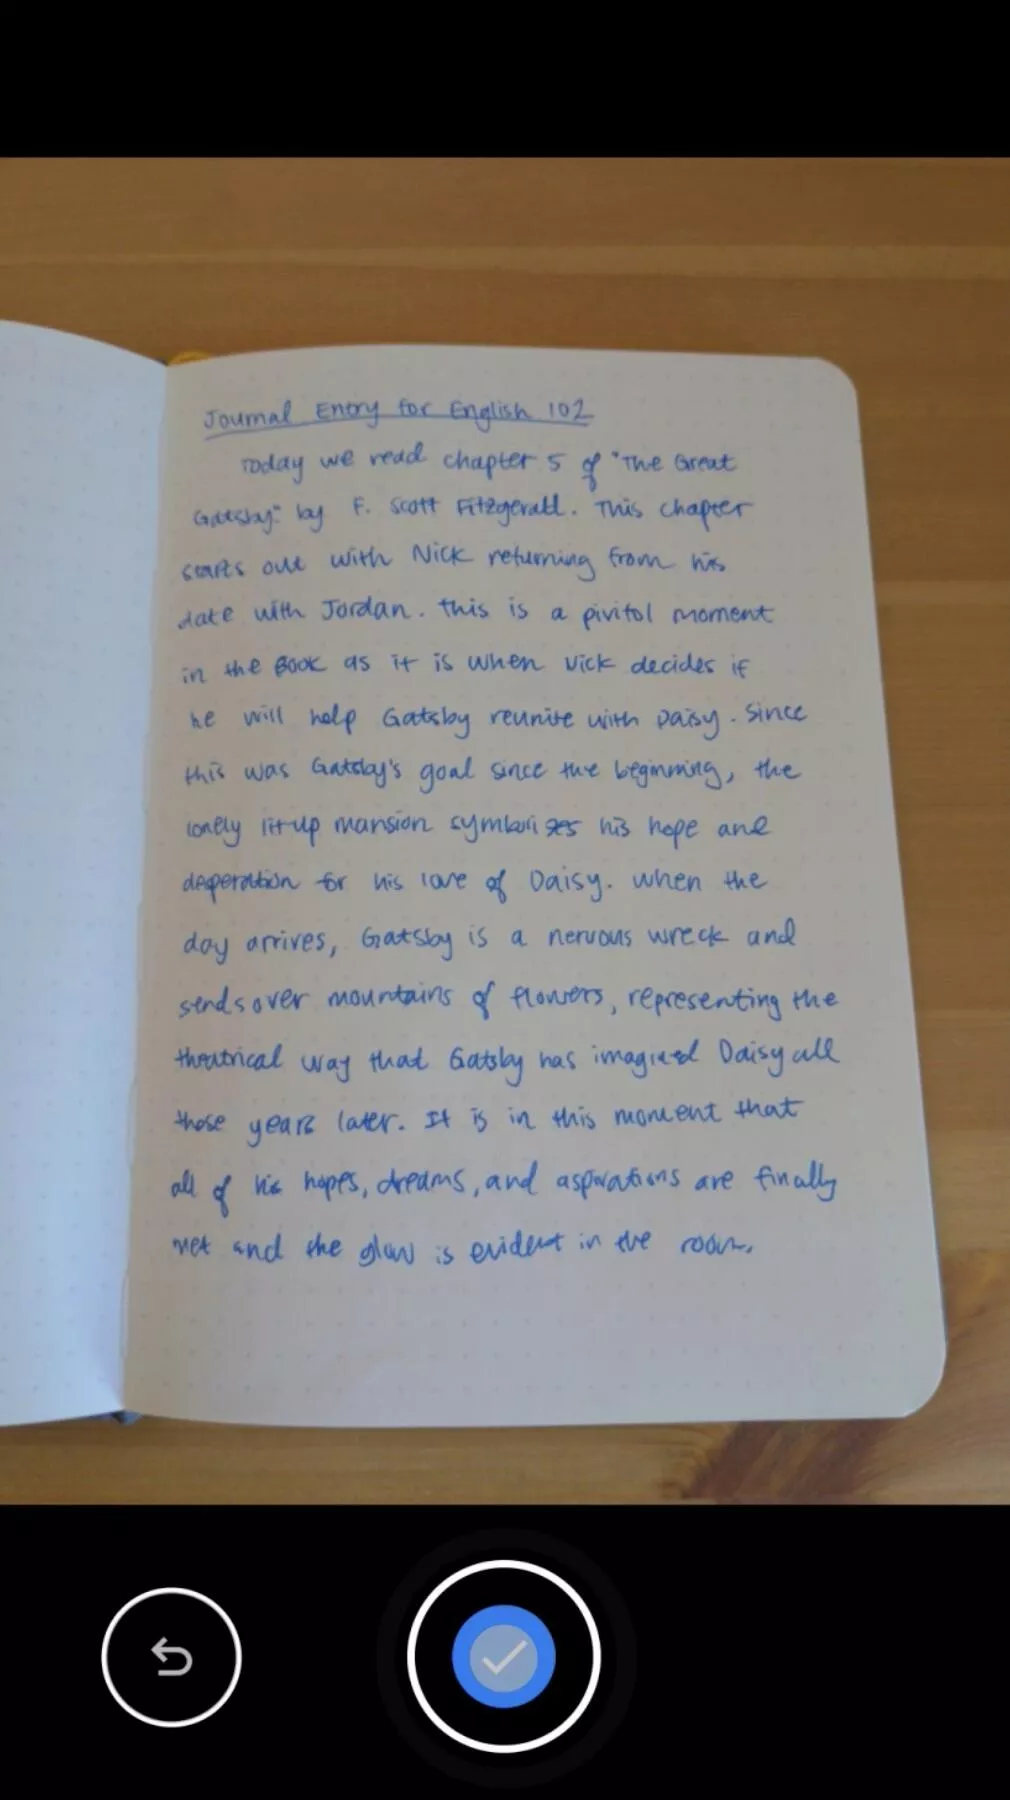 Journal Entry for English 102
Today we read chapter 5 of "The Great
Gatsby" by F. Scott Fitzgerald. This chapter
starts out with Nick returning from his
date with Jordan. This is a pivitol moment
in the book as it is when Nick decides if
he will help Gatsby reunite with Daisy. Since
this was Gatsby's goal since the beginning, the
lonely lit-up mansion symbolizes his hope and
desperation for his love of Daisy. When the
day arrives, Gatsby is a nervous wreck and
sends over mountains of flowers, representing the
theatrical way that Gatsby has imagined Daisy all
those years later. It is in this moment that
all of his hopes, dreams, and aspirations are finally
met and the glow is evident in the room.